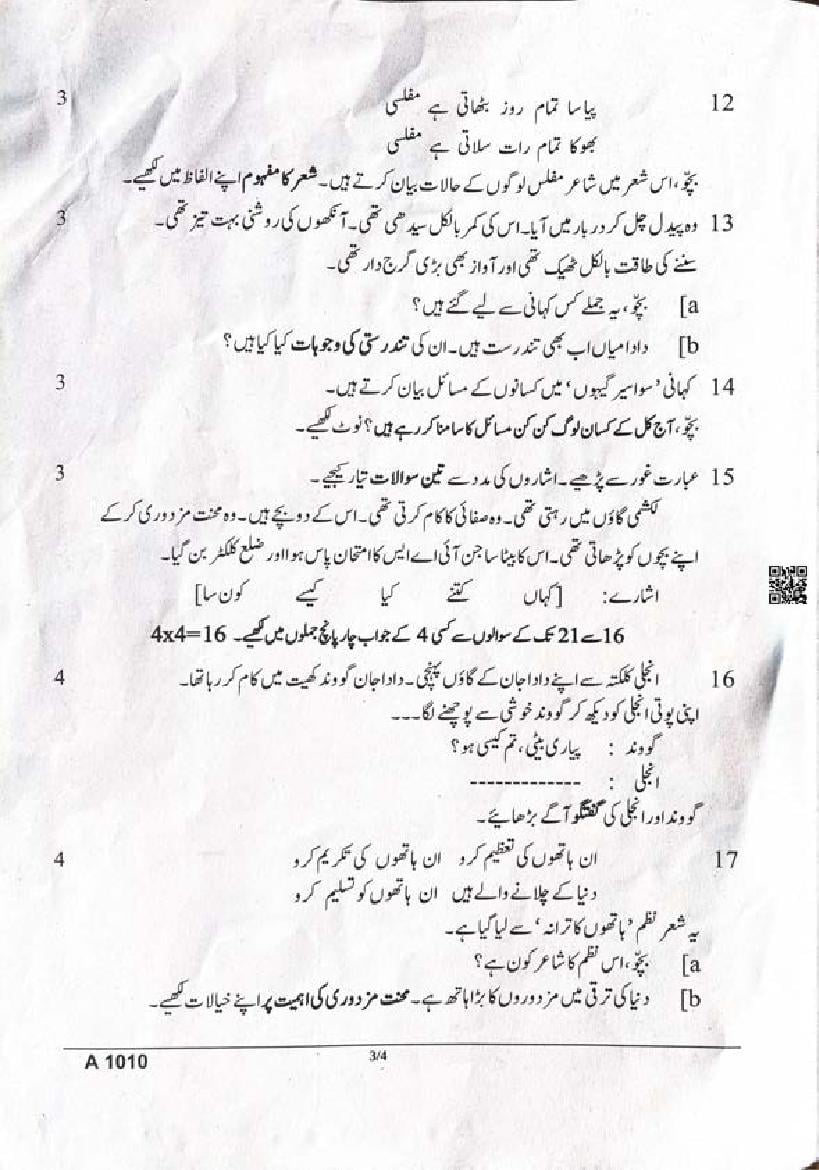 12 پیاسا تمام روز بٹھاتی ہے مفلسی 3
بھوکا تمام رات سلاتی ہے مفلسی
بچّو، اس شعر میں شاعر مفلس لوگوں کے حالات بیان کرتے ہیں۔ شعر کا مفہوم اپنے الفاظ میں لکھیے۔
13 وہ پیدل چل کر دربار میں آیا۔ اس کی کمر بالکل سیدھی تھی۔ آنکھوں کی روشنی بہت تیز تھی۔ 3
سننے کی طاقت بالکل ٹھیک تھی اور آواز بھی بڑی گرج دار تھی۔
a] بچّو، یہ جملے کس کہانی سے لیے گئے ہیں؟
b] دادا میاں اب بھی تندرست ہیں۔ ان کی تندرستی کی وجوہات کیا کیا ہیں؟
14 کہانی ’سوا سیر گیہوں‘ میں کسانوں کے مسائل بیان کرتے ہیں۔ 3
بچّو، آج کل کے کسان لوگ کن کن مسائل کا سامنا کر رہے ہیں؟ نوٹ لکھیے۔
15 عبارت غور سے پڑھیے۔ اشاروں کی مدد سے تین سوالات تیار کیجیے۔ 3
لکشمی گاؤں میں رہتی تھی۔ وہ صفائی کا کام کرتی تھی۔ اس کے دو بچے ہیں۔ وہ محنت مزدوری کر کے
اپنے بچوں کو پڑھاتی تھی۔ اس کا بیٹا ساجن آئی اے ایس کا امتحان پاس ہوا اور ضلع کلکٹر بن گیا۔
اشارے: [کہاں کتنے کیا کیسے کون سا]
16 سے 21 تک کے سوالوں سے کسی 4 کے جواب چار پانچ جملوں میں لکھیے۔ 4x4=16
16 انجلی کلکتہ سے اپنے دادا جان کے گاؤں پہنچی۔ دادا جان گووند کھیت میں کام کر رہا تھا۔ 4
اپنی پوتی انجلی کو دیکھ کر گووند خوشی سے پوچھنے لگا۔۔۔
گووند : پیاری بیٹی، تم کیسی ہو؟
انجلی : -------------
گووند اور انجلی کی گفتگو آگے بڑھائیے۔
17 ان ہاتھوں کی تعظیم کرو ان ہاتھوں کی تکریم کرو 4
دنیا کے چلانے والے ہیں ان ہاتھوں کو تسلیم کرو
یہ شعر نظم ’ہاتھوں کا ترانہ‘ سے لیا گیا ہے۔
a] بچّو، اس نظم کا شاعر کون ہے؟
b] دنیا کی ترقی میں مزدوروں کا بڑا ہاتھ ہے۔ محنت مزدوری کی اہمیت پر اپنے خیالات لکھیے۔
A 1010 3/4